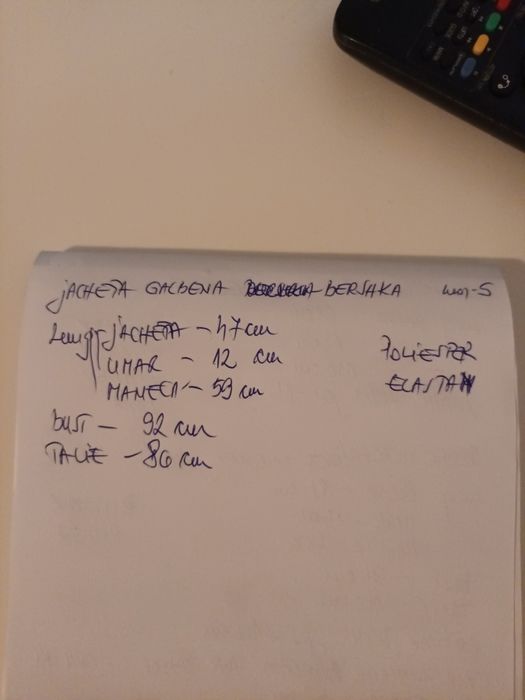 JACHETA GALBENA BERSHKA mas-S
Lung JACHETA - 47 cm
UMAR - 12 cm
MANECA - 59 cm
POLIESTER
ELASTAN
BUST - 92 cm
TALIE - 86 cm